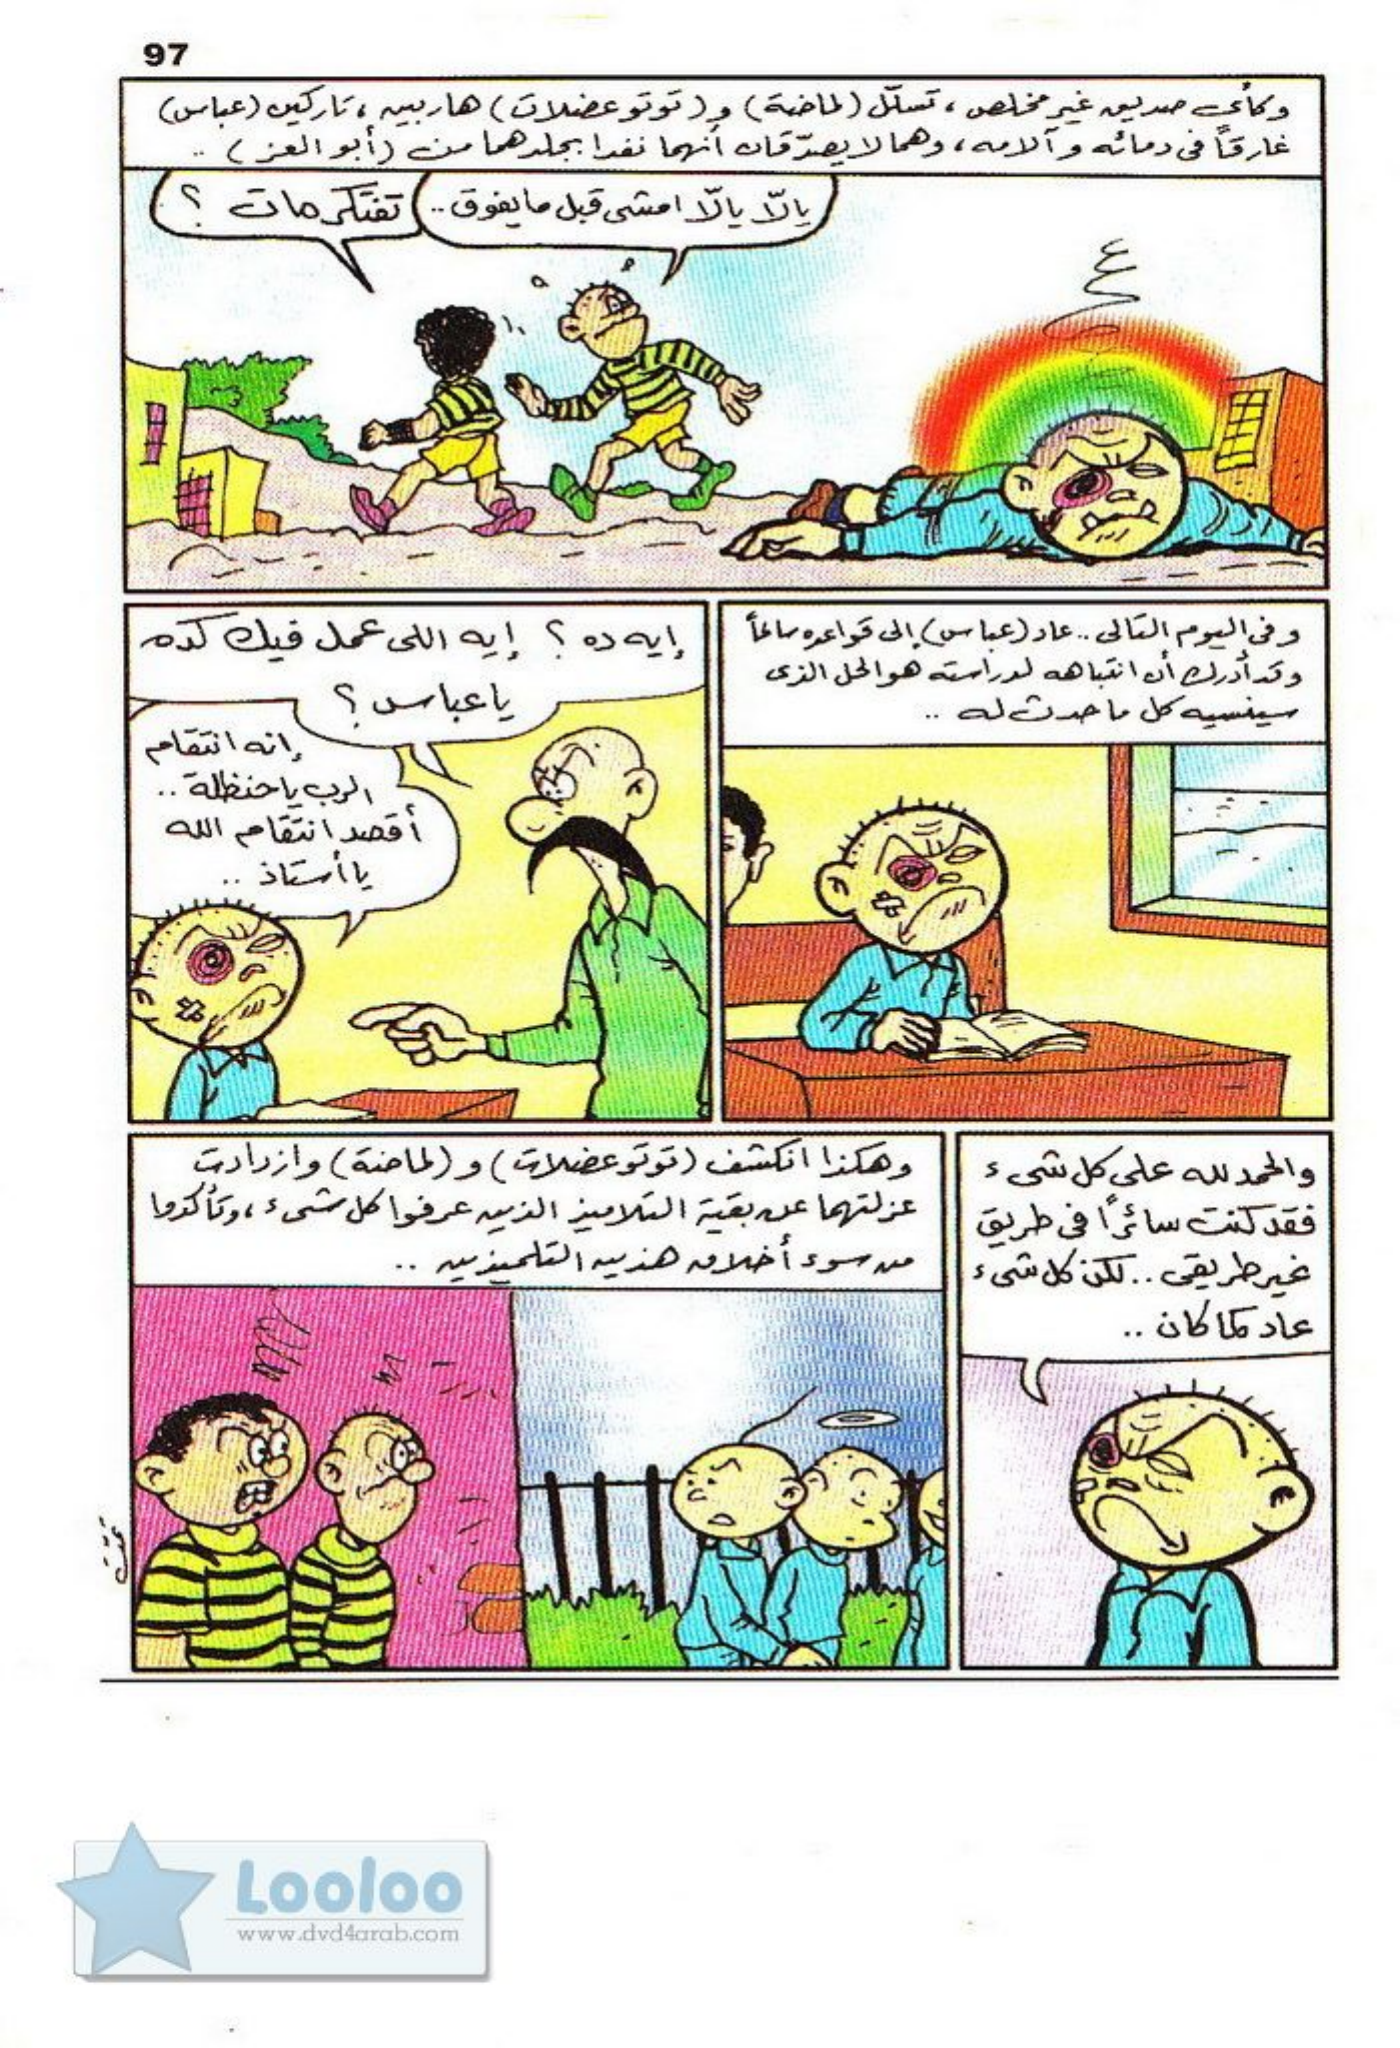 97
وكأى صديق غير مخلص ، تسلّل (لماضة) و (توتو عضلات) هاربين ، تاركين (عباس)
غارقاً فى دمائه وآلامه ، وهما لا يصدّقان أنهما نفدا بجلدهما من (أبو العز) ..
يالّا يالّا امشى قبل ما يفوق ..
تفتكر مات ؟
وفى اليوم التالى .. عاد (عباس) إلى قواعده سالماً
وقد أدرك أن انتباهه لدراسته هو الحل الذى
سينسيه كل ما حدث له ..
إيه ده ؟ إيه اللى عمل فيك كده
يا عباس ؟
إنه انتقام
الرب يا حنظلة ..
أقصد انتقام الله
يا أستاذ ..
والحمد لله على كل شىء
فقد كنت سائراً فى طريق
غير طريقى .. لكن كل شىء
عاد كما كان ..
وهكذا انكشف (توتو عضلات) و (لماضة) وازدادت
عزلتهما عن بقية التلاميذ الذين عرفوا كل شىء ، وتأكدوا
من سوء أخلاق هذين التلميذين ..
تمت
Looloo
www.dvd4arab.com